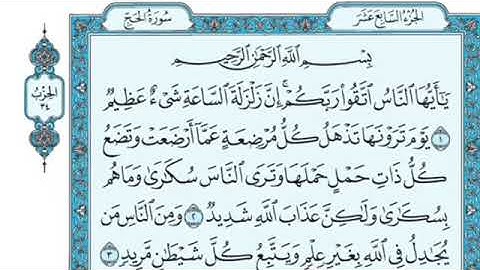 سُورَةُ الحَجِّ
الجُزْءُ السَّابِعَ عَشَرَ
الحِزْبُ
٣٤
بِسْمِ اللَّهِ الرَّحْمَٰنِ الرَّحِيمِ
يَٰٓأَيُّهَا ٱلنَّاسُ ٱتَّقُوا۟ رَبَّكُمْ ۚ إِنَّ زَلْزَلَةَ ٱلسَّاعَةِ شَىْءٌ عَظِيمٌ
﴿١﴾ يَوْمَ تَرَوْنَهَا تَذْهَلُ كُلُّ مُرْضِعَةٍ عَمَّآ أَرْضَعَتْ وَتَضَعُ
كُلُّ ذَاتِ حَمْلٍ حَمْلَهَا وَتَرَى ٱلنَّاسَ سُكَٰرَىٰ وَمَا هُم
بِسُكَٰرَىٰ وَلَٰكِنَّ عَذَابَ ٱللَّهِ شَدِيدٌ ﴿٢﴾ وَمِنَ ٱلنَّاسِ مَن
يُجَٰدِلُ فِى ٱللَّهِ بِغَيْرِ عِلْمٍ وَيَتَّبِعُ كُلَّ شَيْطَٰنٍ مَّرِيدٍ ﴿٣﴾